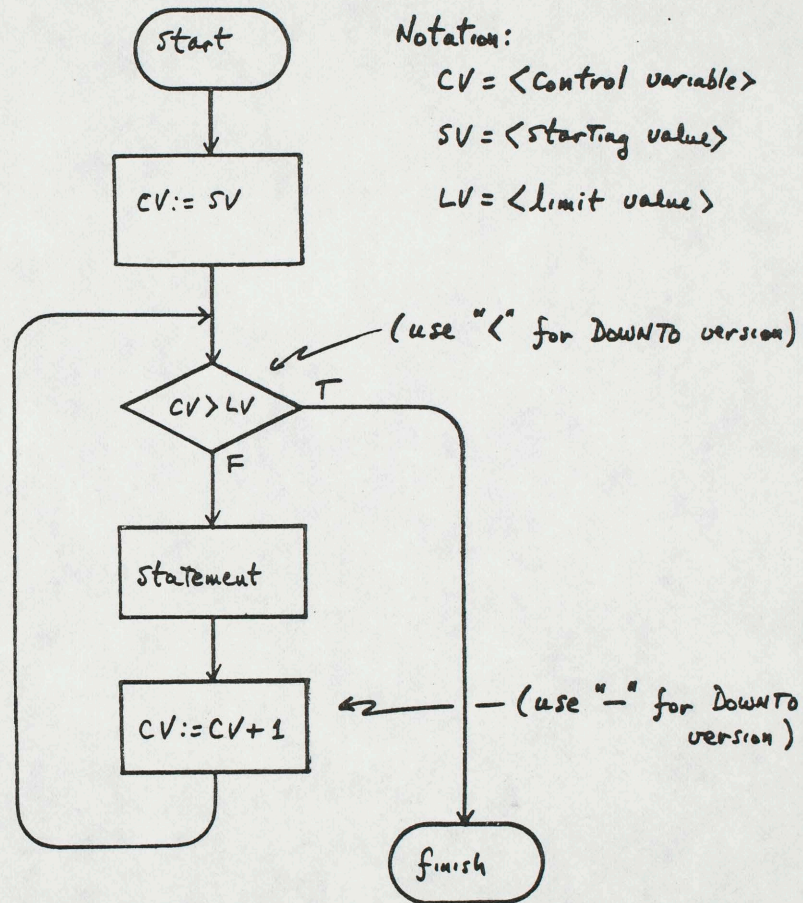 start
Notation:
CV = <control variable>
SV = <starting value>
LV = <limit value>
CV := SV
(use "<" for DOWNTO version)
CV > LV
T
F
statement
CV := CV + 1
(use "—" for DOWNTO
version)
finish